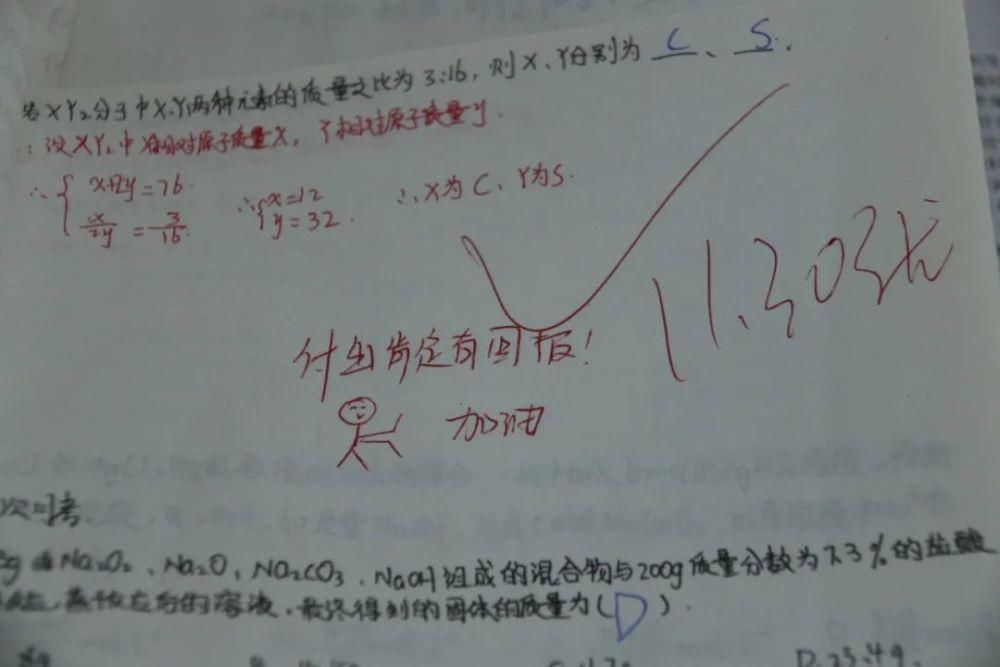 若XY₂分子中X、Y两种元素的质量之比为3:16,则X、Y分别为 C 、 S .
:设XY₂中X相对原子质量X, Y相对原子质量y.
∴{ x+2y=76. ∴{x=12 ∴X为C、Y为S.
x/2y = 3/16. y=32.
11.30张
付出肯定有回报!
加油
次月考
g Na₂O₂、Na₂O、Na₂CO₃、NaOH组成的混合物与200g质量分数为7.3%的盐酸
蒸干反应后的溶液,最终得到的固体的质量为(D).
D.23.4g